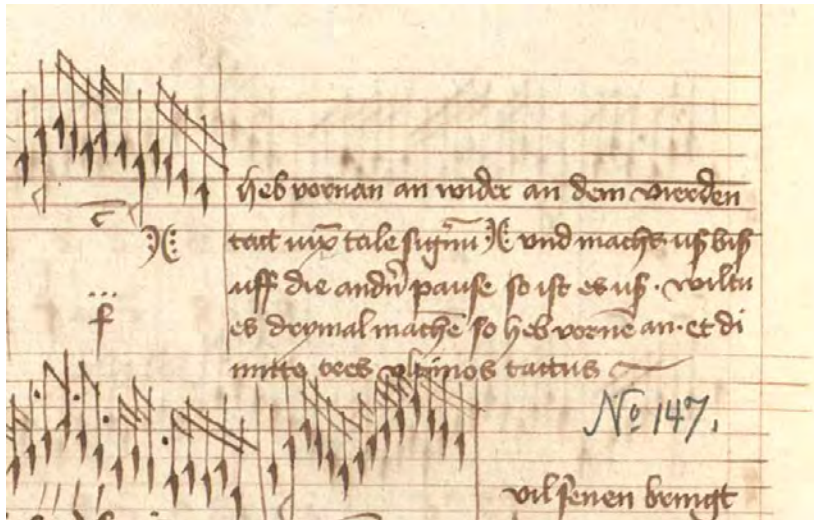 heb vornan an wider an dem vierden
tact iuxta tale signū und machs uß biß
uff die andrn pause so ist es uß · wiltu
es drymal mache so heb vorne an · et di
mitte tres ultimos tactus
No 147.
vil senen bringt